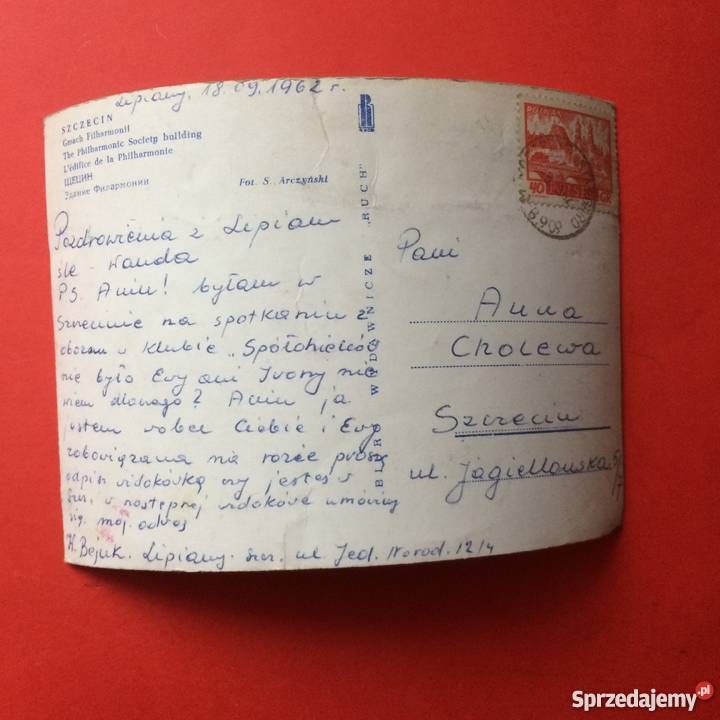 Lipiany, 18.09.1962 r.
SZCZECIN
Gmach Filharmonii
The Philharmonic Society building
L'édifice de la Philharmonie
ЩЕЦИН
Здание Филармонии
Fot. S. Arczyński
Pozdrowienia z Lipian
śle Wanda
PS. Aniu! byłam w
Szczecinie na spotkaniu z
obozu w klubie „Spółdzielców
nie było Ewy ani Iwony nie
wiem dlaczego? Aniu ja
jestem wobec Ciebie i Ewy
zobowiązana na razie proszę
odpisz widokówką czy jesteś w
Szcz. w następnej widokówce umówimy
się. mój adres
W. Bejuk. Lipiany. Szcz. ul. Jed. Narod. 12/4
BIURO WYDAWNICZE „RUCH"
POLSKA
40
Pani
Anna
Cholewa
Szczecin
ul. Jagiellońska
Sprzedajemy.pl